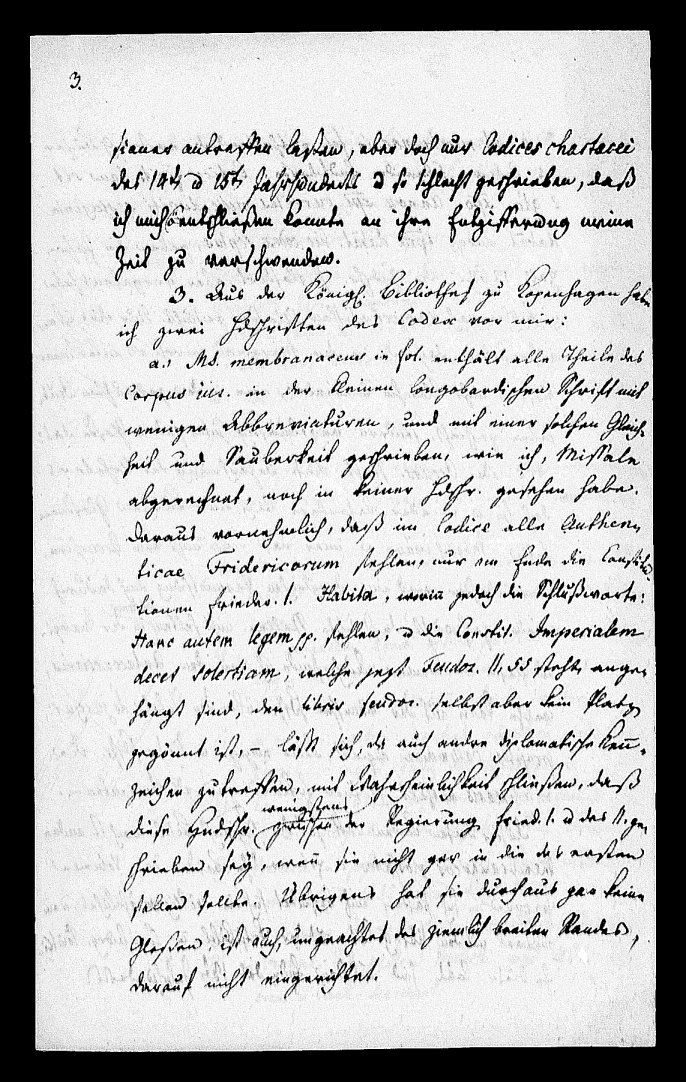 3.
sianer antreffen lassen, aber doch nur Codices chartacei
des 14t. u 15t. Jahrhunderts u so schlecht geschrieben, daß
ich mich entschließen konnte an ihre Entzifferung meine
Zeit zu verschwenden.
3. Aus der Königl. Bibliothek zu Kopenhagen habe
ich zwei Hdschriften des Codex vor mir:
a.) Ms. membranaceum in fol. enthält alle Theile des
Corpus iur. in der kleinen longobardischen Schrift mit
wenigen Abbreviaturen, und mit einer solchen Gleich-
heit und Sauberkeit geschrieben, wie ich, Missale
abgerechnet, noch in keiner Hdschr. gesehen habe.
Daraus vornehmlich, daß im Codice alle Authen-
ticae Fridericorum fehlen, nur am Ende die Constitu-
tionen Frieder. I. Habita, worin jedoch die Schlußworte:
Hanc autem legem pp. fehlen, u die Constit. Imperialem
decet solertiam, welche jezt Feudor. II, 55 steht, ange-
hängt sind, den libris feudor. selbst aber kein Platz
gegönnt ist, – läßt sich, da auch andre diplomatische Kenn-
zeichen zutreffen, mit Wahrscheinlichkeit schließen, daß
diese Hndschr. wenigstens zwischen der Regierung Fried. I. u des II. ge-
schrieben sey, wenn sie nicht gar in die des ersten
fallen sollte. Übrigens hat sie durchaus gar keine
Glossen ist auch, ungeachtet des ziemlich breiten Randes,
darauf nicht eingerichtet.